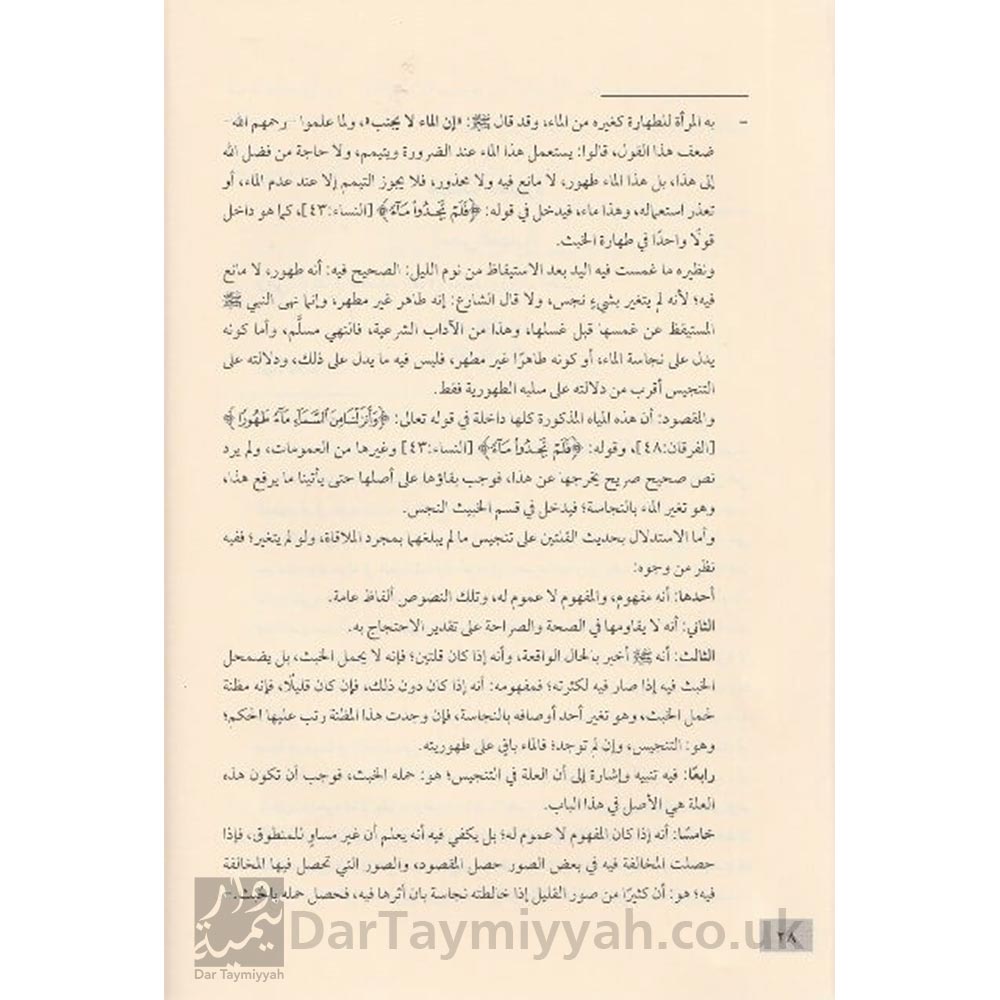 - به المرأة للطهارة كغيره من الماء، وقد قال ﷺ: «إن الماء لا يجنب»، ولما علموا -رحمهم الله-
ضعف هذا القول، قالوا: يستعمل هذا الماء عند الضرورة ويتيمم، ولا حاجة من فضل الله
إلى هذا، بل هذا الماء طهور، لا مانع فيه ولا محذور، فلا يجوز التيمم إلا عند عدم الماء، أو
تعذر استعماله، وهذا ماء، فيدخل في قوله: ﴿فَلَمْ تَجِدُوا مَآءً﴾ [النساء:٤٣]، كما هو داخل
قولًا واحدًا في طهارة الخبث.
ونظيره ما غمست فيه اليد بعد الاستيقاظ من نوم الليل: الصحيح فيه: أنه طهور، لا مانع
فيه؛ لأنه لم يتغير بشيءٍ نجس، ولا قال الشارع: إنه طاهر غير مطهر، وإنما نهى النبي ﷺ
المستيقظ عن غمسها قبل غسلها، وهذا من الآداب الشرعية، فالنهي مسلَّم، وأما كونه
يدل على نجاسة الماء، أو كونه طاهرًا غير مطهر، فليس فيه ما يدل على ذلك، ودلالته على
التنجيس أقرب من دلالته على سلبه الطهورية فقط.
والمقصود: أن هذه المياه المذكورة كلها داخلة في قوله تعالى: ﴿وَأَنزَلْنَا مِنَ ٱلسَّمَآءِ مَآءً طَهُورًا﴾
[الفرقان:٤٨]، وقوله: ﴿فَلَمْ تَجِدُوا مَآءً﴾ [النساء:٤٣] وغيرها من العمومات، ولم يرد
نص صحيح صريح يخرجها عن هذا، فوجب بقاؤها على أصلها حتى يأتينا ما يرفع هذا،
وهو تغير الماء بالنجاسة؛ فيدخل في قسم الخبيث النجس.
وأما الاستدلال بحديث القلتين على تنجيس ما لم يبلغهما بمجرد الملاقاة، ولو لم يتغير؛ ففيه
نظر من وجوه:
أحدها: أنه مفهوم، والمفهوم لا عموم له، وتلك النصوص ألفاظ عامة.
الثاني: أنه لا يقاومها في الصحة والصراحة على تقدير الاحتجاج به.
الثالث: أنه ﷺ أخبر بالحال الواقعة، وأنه إذا كان قلتين؛ فإنه لا يحمل الخبث، بل يضمحل
الخبث فيه إذا صار فيه لكثرته؛ فمفهومه: أنه إذا كان دون ذلك، فإن كان قليلًا، فإنه مظنة
لحمل الخبث، وهو تغير أحد أوصافه بالنجاسة، فإن وجدت هذا المظنة رتب عليها الحكم؛
وهو: التنجيس، وإن لم توجد؛ فالماء باقٍ على طهوريته.
رابعًا: فيه تنبيه وإشارة إلى أن العلة في التنجيس؛ هو: حمله الخبث، فوجب أن تكون هذه
العلة هي الأصل في هذا الباب.
خامسًا: أنه إذا كان المفهوم لا عموم له؛ بل يكفي فيه أنه يعلم أن غير مساوٍ للمنطوق، فإذا
حصلت المخالفة فيه في بعض الصور حصل المقصود، والصور التي تحصل فيها المخالفة
فيه؛ هو: أن كثيرًا من صور القليل إذا خالطته نجاسة بان أثرها فيه، فحصل حمله بالخبث.-
٢٨
دار تيمية
Dar Taymiyyah
DarTaymiyyah.co.uk